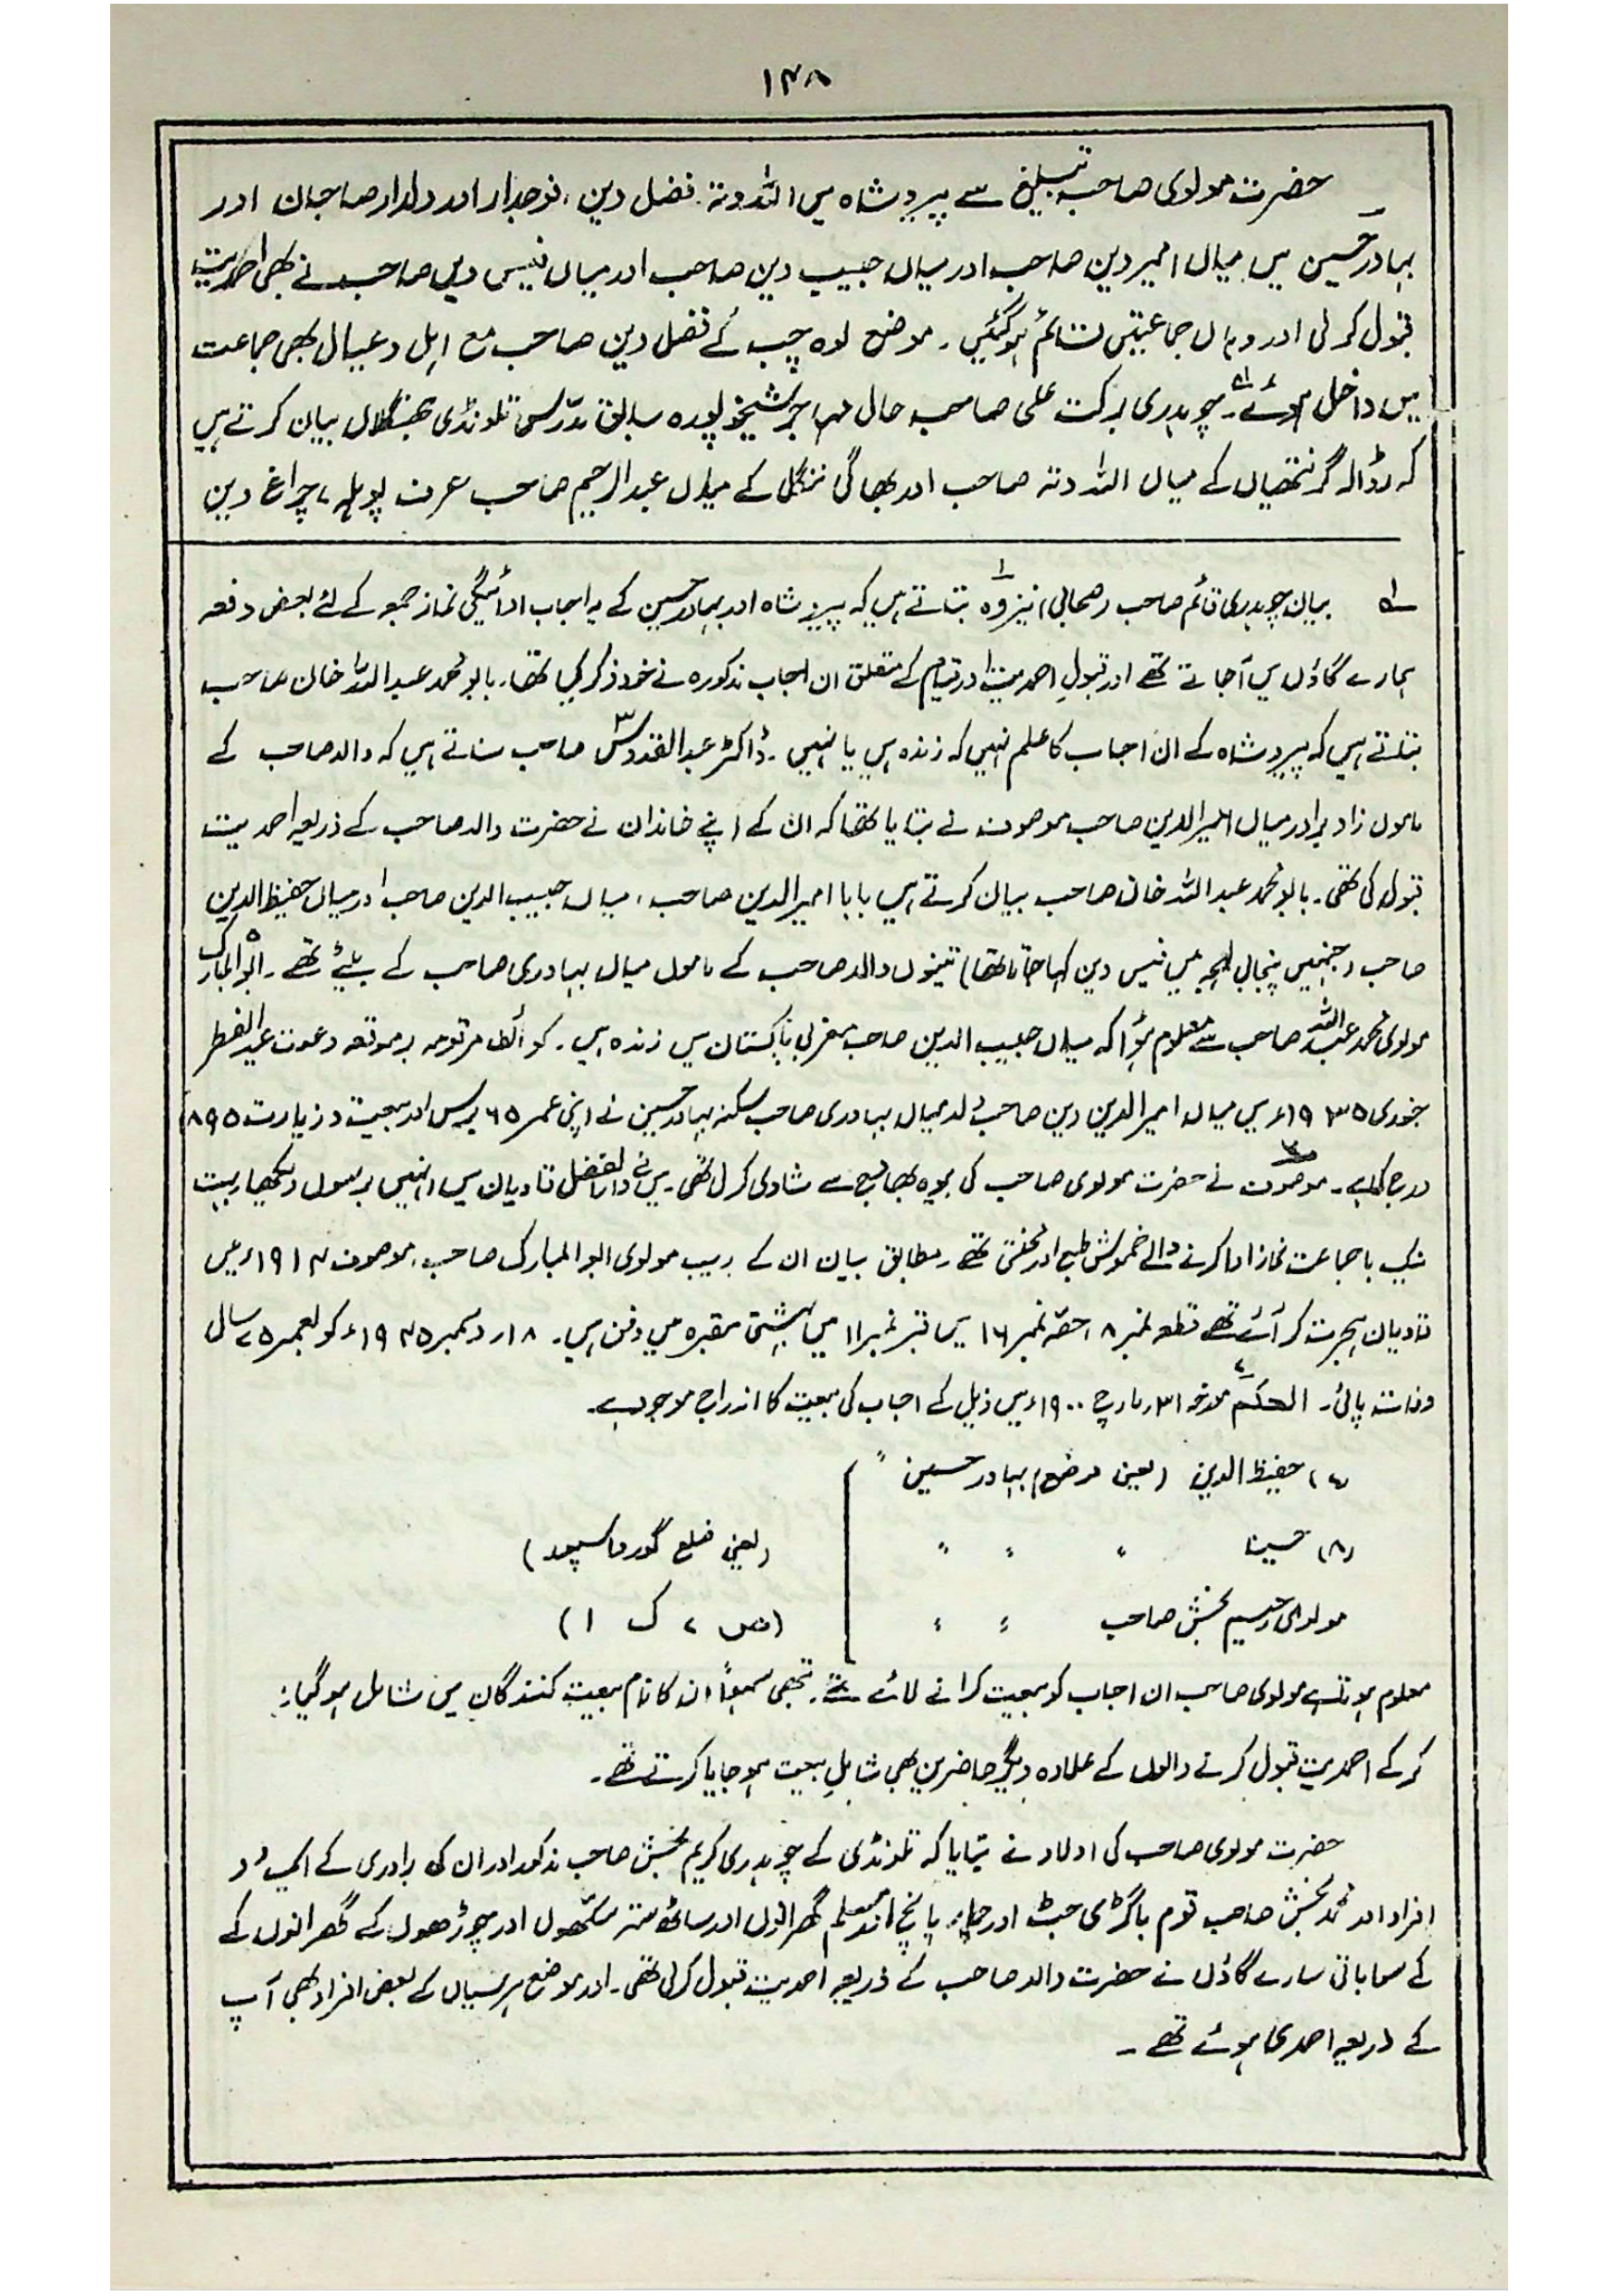 ۱۴۸
حضرت مولوی صاحب تبلیغ سے پیرو شاہ میں اللہ دتہ، فضل دین، فوجدار اور دلدار صاحبان اور
بہادر حسین میں میاں امیر دین صاحب اور میاں حبیب دین صاحب اور میاں فیس دین صاحب نے بھی احمدیت
قبول کر لی اور وہاں جماعتیں قائم ہو گئیں۔ موضع لوہ چپ کے فضل دین صاحب مع اہل و عیال بھی جماعت
میں داخل ہوئے۔ چوہدری برکت علی صاحب حال مہاجر شیخوپورہ سابق مدرس تلونڈی جھنگلاں بیان کرتے ہیں
کہ رڈالہ گرنتھیاں کے میاں اللہ دتہ صاحب اور بھاگی ننگل کے میاں عبدالرحیم صاحب عرف پوہلہ، چراغ دین
لہ بیان چوہدری قائم صاحب (صحابی) نیز وہ بتاتے ہیں کہ پیرو شاہ اور بہادر حسین کے یہ احباب ادائیگی نماز جمعہ کے لئے بعض دفعہ
ہمارے گاؤں میں آ جاتے تھے اور قبولِ احمدیت اور قیام کے متعلق ان احباب مذکورہ نے خود ذکر کیا تھا۔ بابو محمد عبداللہ خان صاحب
بتاتے ہیں کہ پیرو شاہ کے ان احباب کا علم نہیں کہ زندہ ہیں یا نہیں۔ ڈاکٹر عبدالقدوس صاحب سناتے ہیں کہ والد صاحب کے
ماموں زاد برادر میاں امیرالدین صاحب موصوف نے بتایا تھا کہ ان کے اپنے خاندان نے حضرت والد صاحب کے ذریعہ احمدیت
قبول کی تھی۔ بابو محمد عبداللہ خان صاحب بیان کرتے ہیں بابا امیرالدین صاحب، میاں حبیب الدین صاحب اور میاں حفیظ الدین
صاحب (جنہیں پنجابی لہجہ میں فیس دین کہا جاتا تھا) تینوں والد صاحب کے ماموں میاں بہادری صاحب کے بیٹے تھے۔ ابوالمبارک
مولوی محمد عبداللہ صاحب سے معلوم ہؤا کہ میاں حبیب الدین صاحب مغربی پاکستان میں زندہ ہیں۔ کوائف مرقومہ برموقعہ دعوت عیدالفطر
جنوری ۱۹۳۵ء میں میاں امیرالدین دین صاحب ولد میاں بہادری صاحب سکنہ بہادر حسین نے اپنی عمر ۶۵ برس اور بیعت و زیارت ۱۸۹۵ء
درج کیا ہے۔ موصوف نے حضرت مولوی صاحب کی بیوہ بھاوج سے شادی کر لی تھی۔ میں نے دارالفضل قادیان میں انہیں برسوں دیکھا، بہت
نیک باجماعت نماز ادا کرنے والے خموش طبع اور محنتی تھے۔ مطابق بیان ان کے ربیب مولوی ابوالمبارک صاحب، موصوف ۱۹۱۴ء میں
قادیان ہجرت کر آئے تھے قطعہ نمبر ۸، حصّہ نمبر ۱۶ میں قبر نمبر ۱۱ میں بہشتی مقبرہ میں دفن ہیں۔ ۱۸؍ دسمبر ۱۹۴۵ء کو بعمر ۷۵ سال
وفات پائی۔ الحکم مورخہ ۳۱؍ مارچ ۱۹۰۰ء میں ذیل کے احباب کی بیعت کا اندراج موجود ہے۔
(۷) حفیظ الدین (یعنی موضع) بہادر حسین "
(۸) حسینا " " " (یعنی ضلع گورداسپور)
مولوی رحیم بخش صاحب " " (ص ۷ ک ۱)
معلوم ہوتا ہے مولوی صاحب ان احباب کو بیعت کرانے لائے تھے۔ تبھی سہواً ان کا نام بیعت کنندگان میں شامل ہو گیا۔
کر کے احمدیت قبول کرنے والوں کے علاوہ دیگر حاضرین بھی شاملِ بیعت ہو جایا کرتے تھے۔
حضرت مولوی صاحب کی اولاد نے بتایا کہ تلونڈی کے چوہدری کریم بخش صاحب مذکور اور ان کی برادری کے ایک دو
افراد اور محمد بخش صاحب قوم باگڑی جٹ اور چار پانچ اور مسلم گھرانوں اور ساٹھ ستر سکھوں اور چوڑھوں کے گھرانوں کے
کے سوا باقی سارے گاؤں نے حضرت والد صاحب کے ذریعہ احمدیت قبول کر لی تھی۔ اور موضع ہرسیاں کے بعض افراد بھی آپ
کے ذریعہ احمدی ہوئے تھے۔